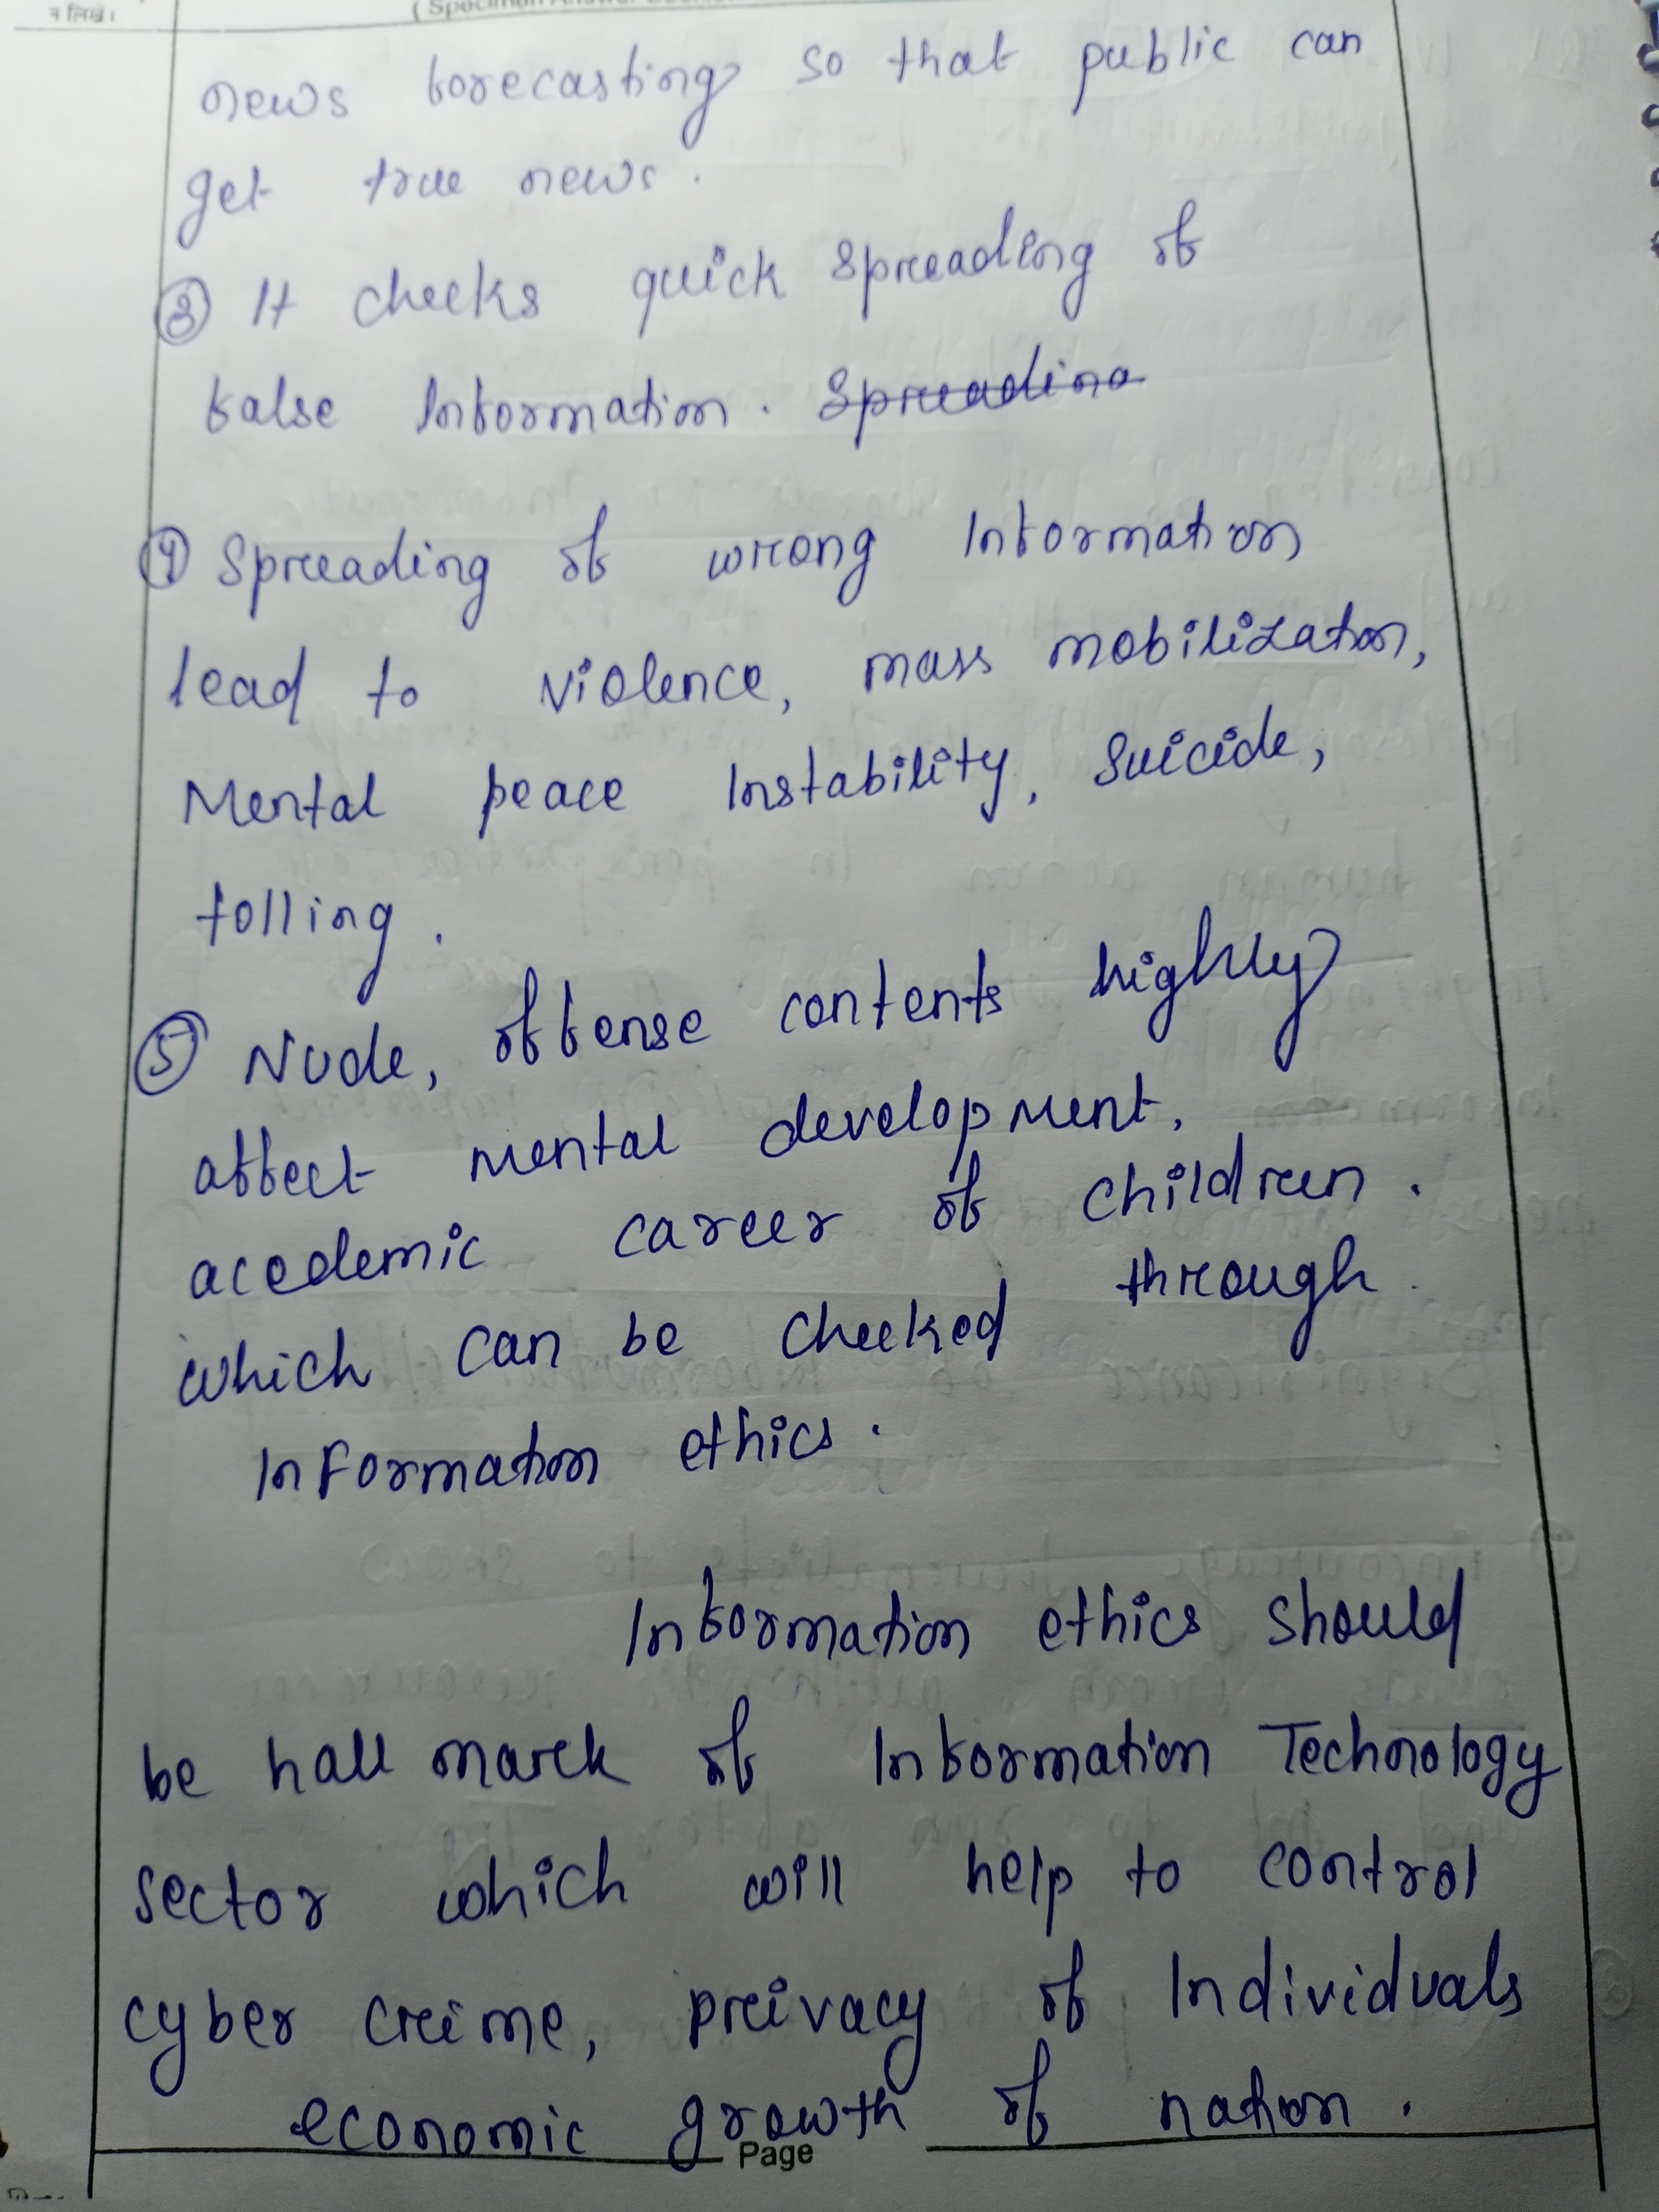 न लिखें।
news forecasting so that public can
get true news.
③ It checks quick spreading of
false Information. Spreading
④ Spreading of wrong Information
lead to violence, mass mobilization,
Mental peace Instability, Suicide,
tolling.
⑤ Nude, offense contents highly
affect mental development,
acedemic career of children.
which can be checked through
InFormation ethics.
Information ethics should
be hall mark of Information Technology
sector which will help to control
cyber crime, privacy of Individuals
economic growth of nation.
Page